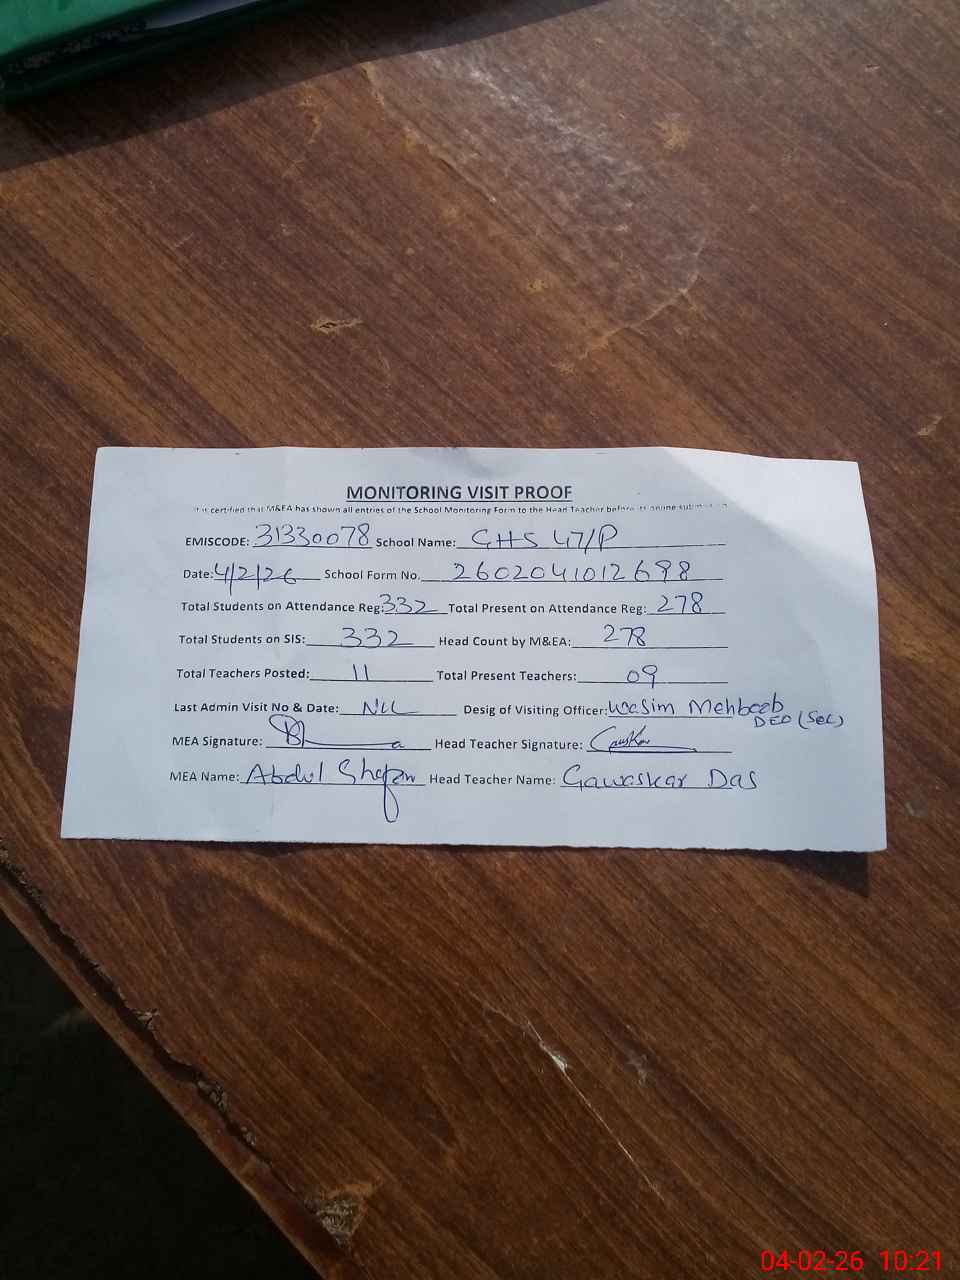 MONITORING VISIT PROOF
It is certified that M&EA has shown all entries of the School Monitoring Form to the Head Teacher before its online submission
EMISCODE: 31330078 School Name: GHS 47/P
Date: 4/2/26 School Form No. 2602041012698
Total Students on Attendance Reg: 332 Total Present on Attendance Reg: 278
Total Students on SIS: 332 Head Count by M&EA: 278
Total Teachers Posted: 11 Total Present Teachers: 09
Last Admin Visit No & Date: Nil Desig of Visiting Officer: Wasim Mehboob
DEO (SEC)
MEA Signature: Head Teacher Signature:
MEA Name: Abdul Head Teacher Name: Gawaskar Das
04-02-26 10:21